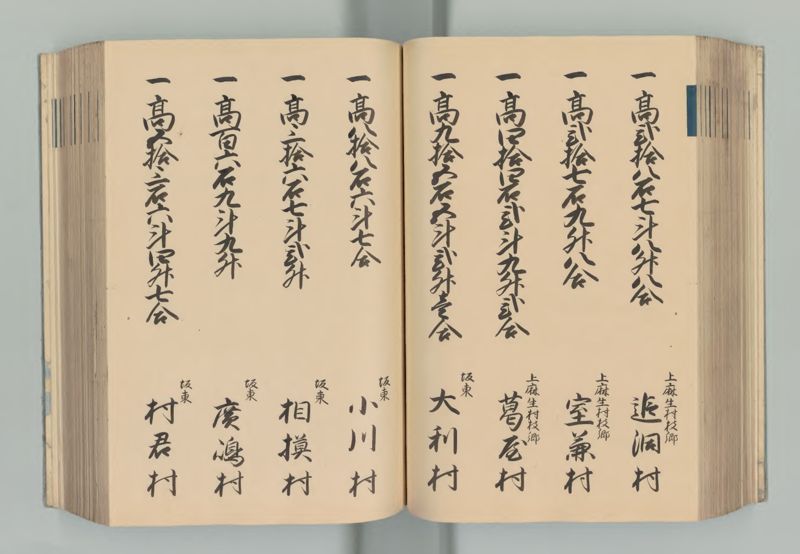 一高弐拾八石七斗八升八合
上麻生村枝郷
追洞村
一高弐拾七石九升八合
上麻生村枝郷
室兼村
一高四拾四石弐斗九升弐合
上麻生村枝郷
葛屋村
一高九拾五石五斗弐升壱合
坂東
大利村
一高八拾八石六斗七合
坂東
小川村
一高三拾六石七斗弐升
坂東
相摸村
一高百六石九斗九升
坂東
廣嶋村
一高五拾三石六斗四升七合
坂東
村君村